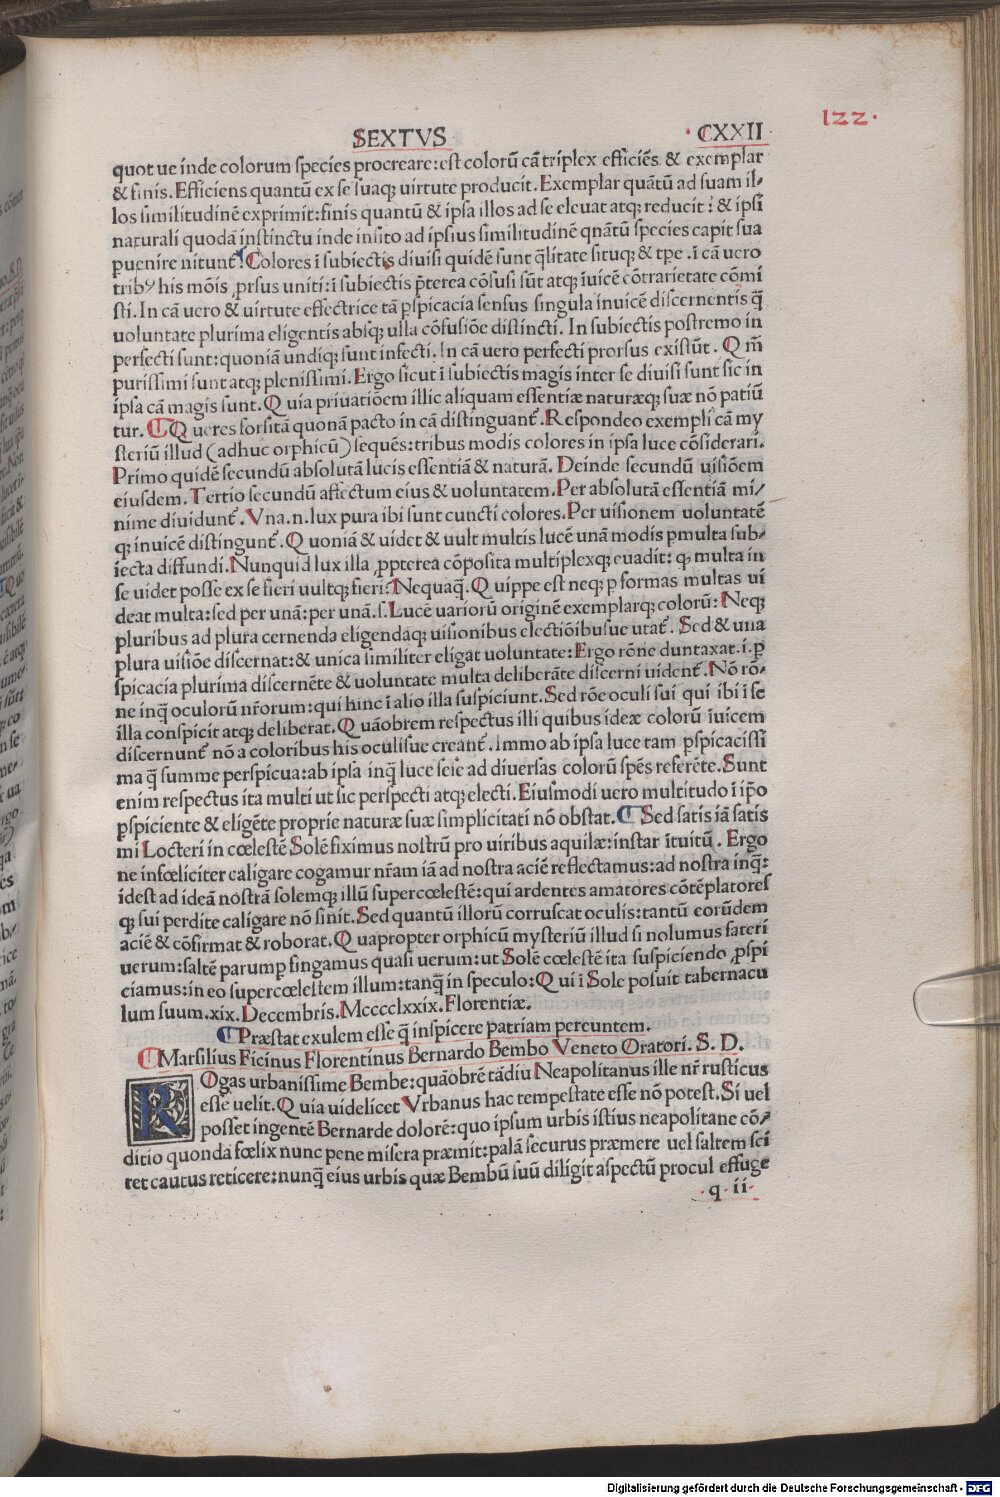 122.
SEXTVS
· CXXII
quot ue inde colorum species procreare: est colorū cā triplex efficiēs & exemplar
& finis. Efficiens quantū ex se suaq; uirtute producit. Exemplar quātū ad suam il-
los similitudinē exprimit: finis quantū & ipsa illos ad se eleuat atq; reducit: & ipsi
naturali quodā instinctu inde insito ad ipsius similitudinē quātū species capit sua
puenire nitunt̃. Colores ī subiectis diuisi quidē sunt q̄litate situq; & tp̄e. ī cā uero
tribꝰ his mōis ꝓrsus uniti: ī subiectis p̄terea cōfusi sūt atq; īuicē cōtrarietate cōmi
sti. In cā uero & uirtute effectrice tā ꝑspicacia sensus singula inuicē discernentis q̄
uoluntate plurima eligentis absq; ulla cōfusiōe distincti. In subiectis postremo in
perfecti sunt: quoniā undiq; sunt infecti. In cā uero perfecti prorsus existūt. Q m̄
purissimi sunt atq; plenissimi. Ergo sicut ī subiectis magis inter se diuisi sunt sic in
ipsa cā magis sunt. Q uia priuatiōem illic aliquam essentiæ naturæq; suæ nō patiū
tur. ¶ Q ueres forsitā quonā pacto in cā distinguant̃. Respondeo exempli cā my
steriū illud (adhuc orphicū) sequēs: tribus modis colores in ipsa luce cōsiderari.
Primo quidē secundū absolutā lucis essentiā & naturā. Deinde secundū uisiōem
eiusdem. Tertio secundū affectum eius & uoluntatem. Per absolutā essentiā mi/
nime diuidunt̃. Vna .n. lux pura ibi sunt cuncti colores. Per uisionem uoluntatē
q; inuicē distingunt̃. Q uoniā & uidet & uult multis lucē unā modis ꝑmulta sub-
iecta diffundi. Nunquid lux illa ꝓpterea cōposita multiplexq; euadit: q; multa in
se uidet posse ex se fieri uultq; fieri? Nequaq̄. Q uippe est neq; ꝑ formas multas ui
deat multa: sed per unā: per unā .s. Lucē uariorū originē exemplarq; colorū: Neq;
pluribus ad plura cernenda eligendaq; uisionibus electiōibusue utat̃. Sed & una
plura uisiōe discernat: & unica similiter eligat uoluntate: Ergo rōne duntaxat .i. ꝑ
spicacia plurima discernēte & uoluntate multa deliberāte discerni uident̃. Nō rō-
ne inq̄ oculorū nr̄orum: qui hinc ī alio illa suspiciunt. Sed rōe oculi sui qui ibi ī se
illa conspicit atq; deliberat. Q uāobrem respectus illi quibus ideæ colorū īuicem
discernunt̃ nō a coloribus his oculisue creant̃. Immo ab ipsa luce tam ꝑspicacissi
ma q̄ summe perspicua: ab ipsa inq̄ luce sese ad diuersas colorū spēs referēte. Sunt
enim respectus ita multi ut sic perspecti atq; electi. Eiusmodi uero multitudo ī ip̄o
ꝑspiciente & eligēte proprie naturæ suæ simplicitati nō obstat. ¶ Sed satis iā satis
mi Locteri in cœlestē Solē fiximus nostrū pro uiribus aquilæ: instar ītuitū. Ergo
ne infœliciter caligare cogamur nr̄am iā ad nostra aciē reflectamus: ad nostra inq̄:
idest ad ideā nostrā solemq; illū supercœlestē: qui ardentes amatores cōtēplatores
q; sui perdite caligare nō sinit. Sed quantū illorū corruscat oculis: tantū eorūdem
aciē & cōfirmat & roborat. Q uapropter orphicū mysteriū illud si nolumus fateri
uerum: saltē parumꝑ fingamus quasi uerum: ut Solē cœlestē ita suspiciendo ꝑspi
ciamus: in eo supercœlestem illum: tanq̄ in speculo: Q ui ī Sole posuit tabernacu
lum suum. xix. Decembris. Mcccclxxix. Florentiæ.
¶ Præstat exulem esse q̄ inspicere patriam pereuntem.
¶ Marsilius Ficinus Florentinus Bernardo Bembo Veneto Oratori. S. D.
R Ogas urbanissime Bembe: quāobrē tādiu Neapolitanus ille nr̄ rusticus
esse uelit. Q uia uidelicet Vrbanus hac tempestate esse nō potest. Si uel
posset ingentē Bernarde dolorē: quo ipsum urbis istius neapolitane cō/
ditio quondā fœlix nunc pene misera præmit: palā securus præmere uel saltem sci
ret cautus reticere: nunq̄ eius urbis quæ Bembū suū diligit aspectū procul effuge
· q · ii ·
Digitalisierung gefördert durch die Deutsche Forschungsgemeinschaft - DFG